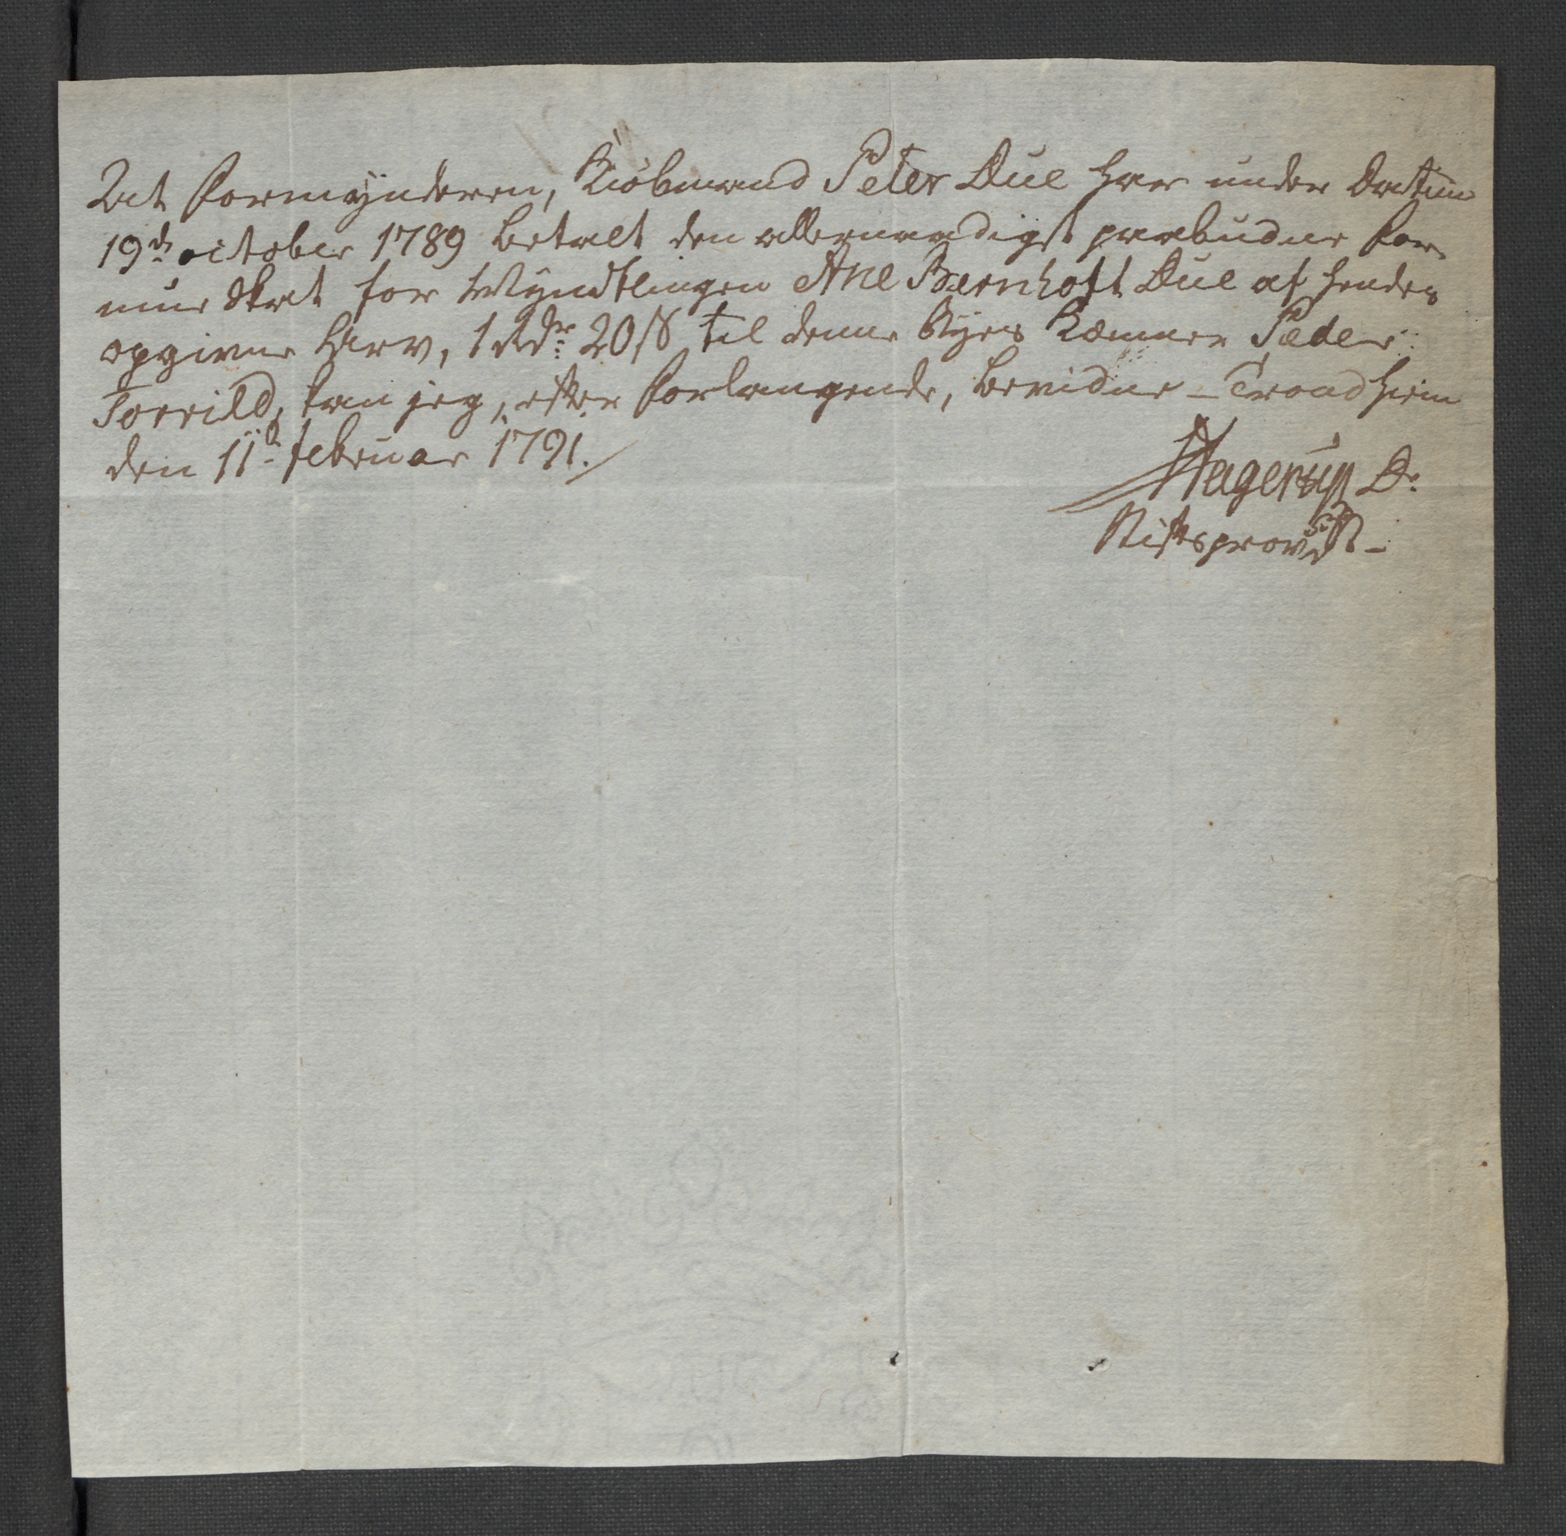 At Formynderen, Kiöbmand Peter Due har under Datum
19de october 1789 betalt den allernaadigst paabudne For-
mue Skat for Myndtlingen Ane Bernhoft Due af hendes
opgivne Arv, 1 Rdr: 20 s til denne Byes Kæmner Peder
Torrild, kan jeg, efter Forlangende, bevidne - Trondhiem
den 11te februar 1791.
Hagerup D:
Stiftsprovst -